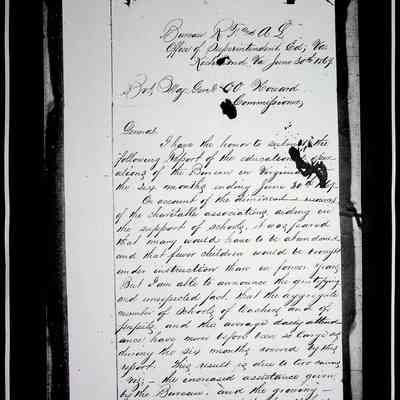 Bureau R. F. and A. L.
Office of Superintendent Ed, Va
Richmond Va June 30th 1869
Bvt. Maj. Genl O O Howard
Commissioner,
General
I have the honor to submit the
following Report of the educational
ations of the Bureau in Virginia
the six months ending June 30th
On account of the diminished
of the charitable associations aiding in
the support of schools, it was feared
that many would have to be abandoned
and that fewer children would be brought
under instruction than in former years
But I am able to announce the gratifying
and unexpected fact, that the aggregate
number of schools of teachers and of
pupils and the average daily attend
ance, have never before been so large as
during the six months covered by this
report. This result is due to two causes
viz, - the increased assistance given
by the Bureau, and the growing